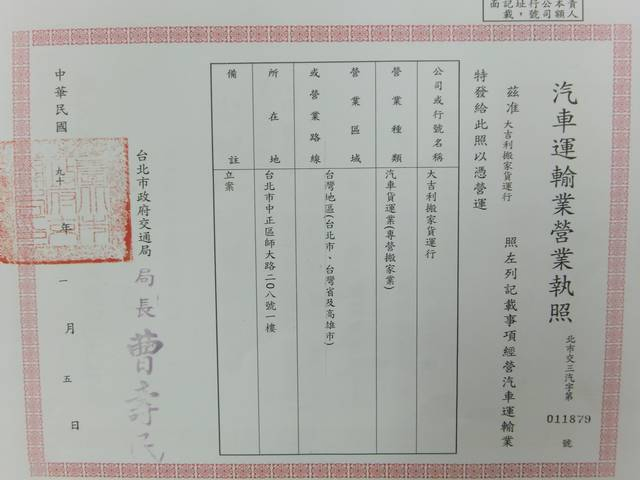 責人
本額
公司
行號，
址
記載
面
汽車運輸業營業執照
北市交三汽字第
011879
號
茲准 大吉利搬家貨運行 照左列記載事項經營汽車運輸業
特發給此照以憑營運
公司或行號名稱 大吉利搬家貨運行
營業種類 汽車貨運業(專營搬家業)
營業區域
或營業路線 台灣地區(台北市、台灣省及高雄市)
所在地 台北市中正區師大路二0八號一樓
備註 立案
台北市政府交通局 局長 曹壽民
中華民國 九十 年 一 月 五 日